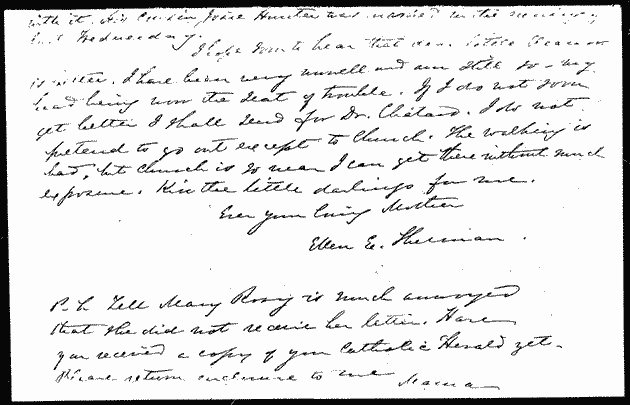 with it. His Cousin Josie Hunter was married in the
last Wednesday.
I hope soon to hear that dear little Eleanor
is better. I have been very unwell and am still so - my
head being now the seat of trouble. If I do not soon
get better I shall send for Dr. Chatard. I do not
pretend to go out except to Church. The walking is
bad, but Church is so near I can get there without much
exposure. Kiss the little darlings for me.
Ever your loving Mother
Ellen E. Sherman.
P.S. Tell Mary Rosy is much annoyed
that she did not receive her letter. Have
you received a copy of your Catholic Herald yet -
Please return enclosure to me Mama